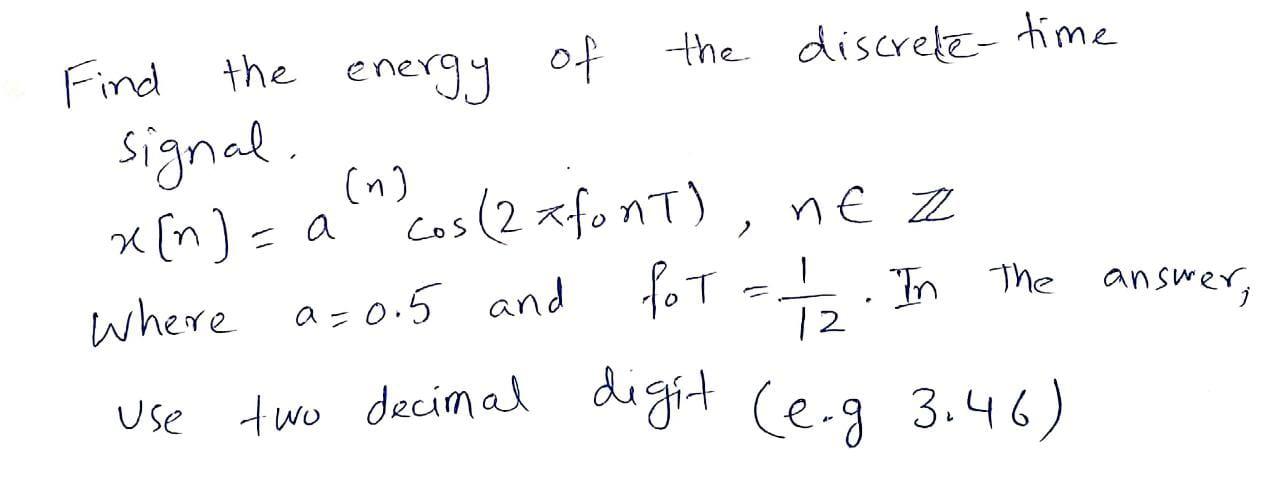 Find the energy of the discrete-time
signal.
x[n] = a^(n) cos(2πf₀nT), n∈ ℤ
where a=0.5 and f₀T = 1/12. In The answer,
Use two decimal digit (e.g 3.46)